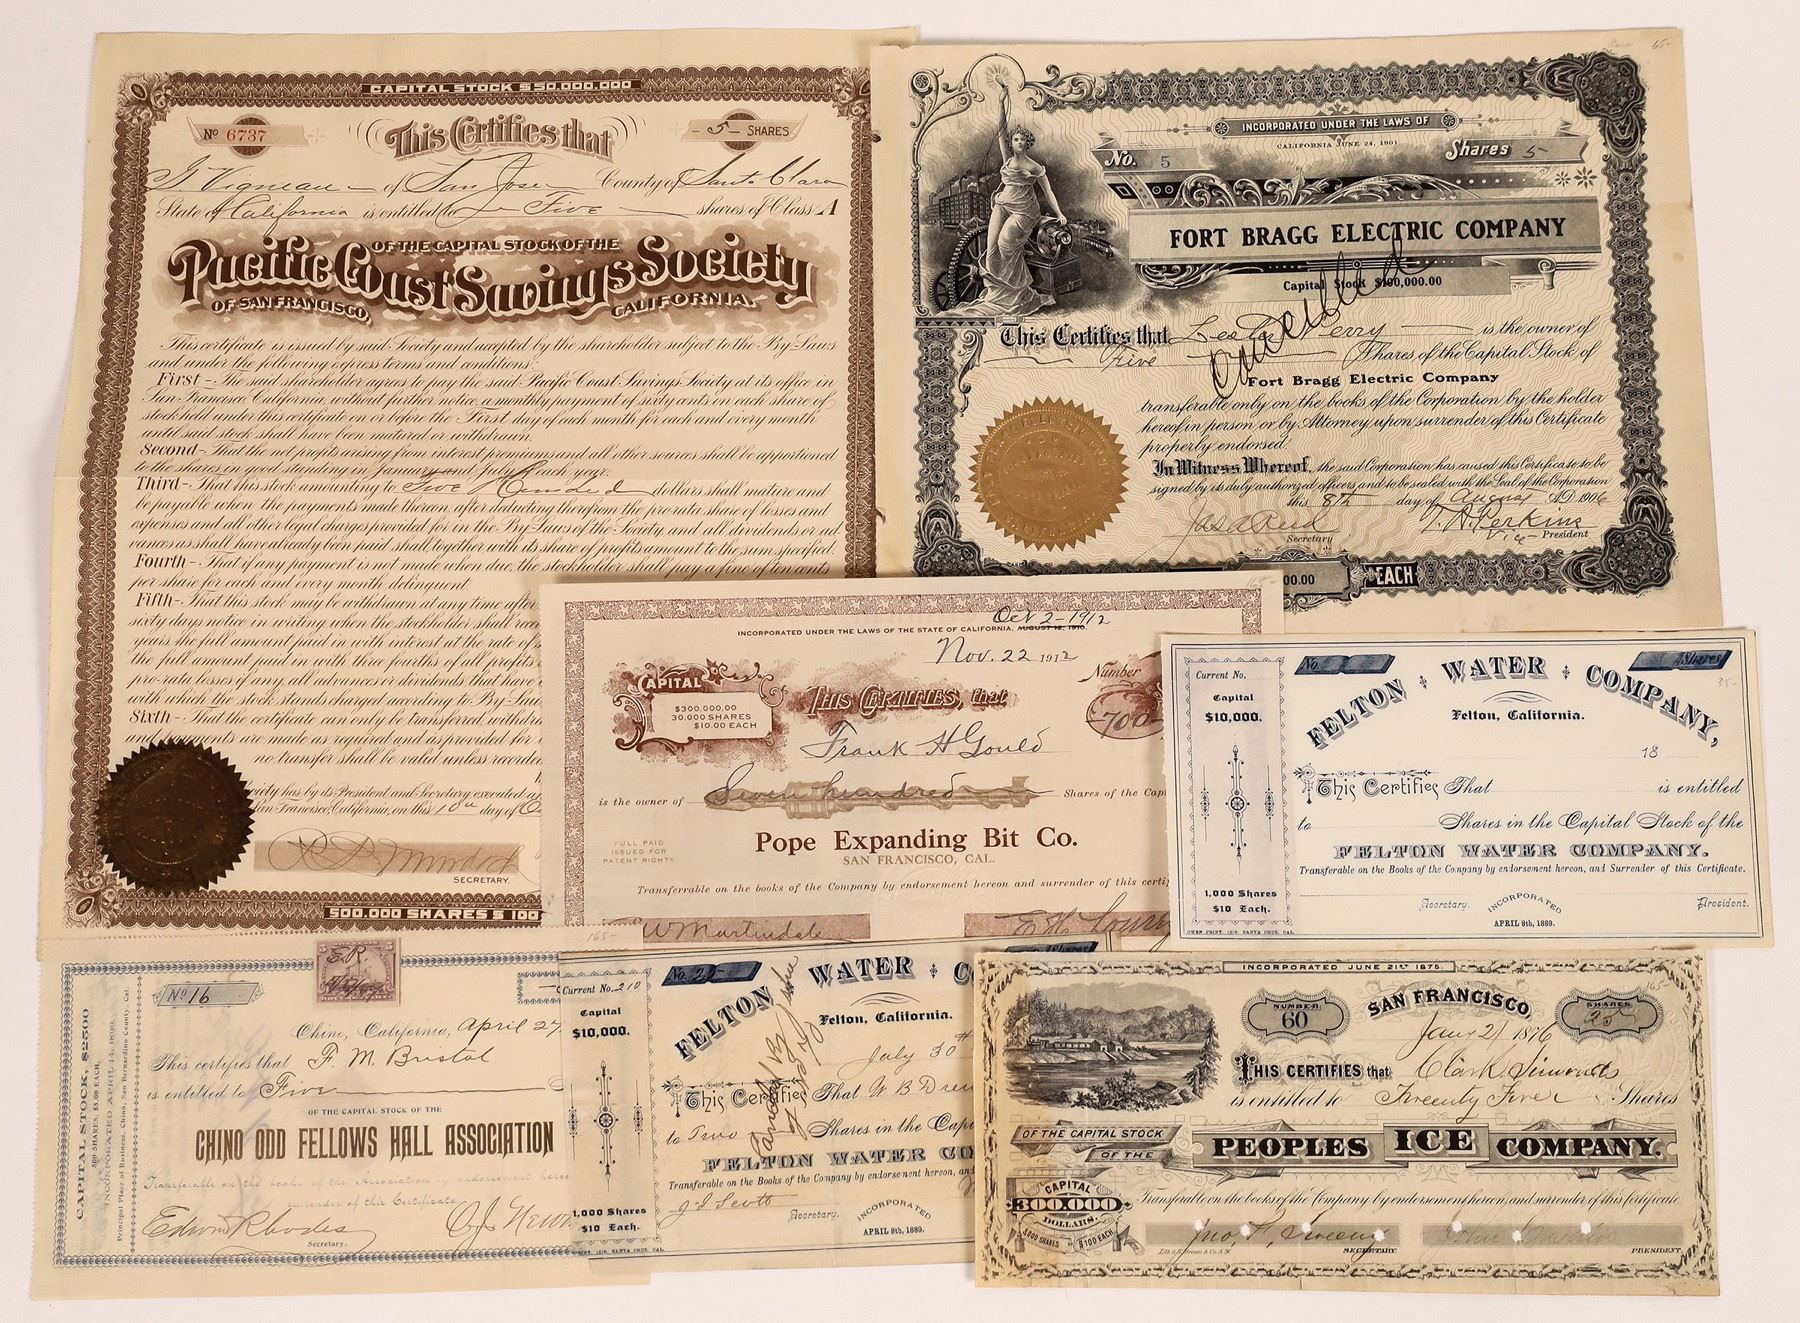 CAPITAL STOCK $50,000,000
No 6737
This Certifies that
- 5 - SHARES
G Vigneau of San Jose County of Santa Clara
State of California is entitled to Five shares of Class A
OF THE CAPITAL STOCK OF THE
Pacific Coast Savings Society
OF SAN FRANCISCO, CALIFORNIA.
This certificate is issued by said Society and accepted by the shareholder subject to the By-Laws
and under the following express terms and conditions:
First - The said shareholder agrees to pay the said Pacific Coast Savings Society at its office in
San Francisco, California, without further notice, a monthly payment of sixty cents on each share of
stock held under this certificate on or before the First day of each month for each and every month
until said stock shall have been matured or withdrawn.
Second - That the net profits arising from interest premiums and all other sources shall be apportioned
to the shares in good standing in January and July of each year.
Third - That this stock amounting to Five Hundred dollars shall mature and
be payable when the payments made thereon, after deducting therefrom the pro-rata share of losses and
expenses and all other legal charges provided for in the By-Laws of the Society, and all dividends or ad-
vances as shall have already been paid shall, together with its share of profits amount to the sum specified.
Fourth - That if any payment is not made when due, the stockholder shall pay a fine of ten cents
per share for each and every month delinquent.
Fifth - That this stock may be withdrawn at any time after
sixty days notice in writing when the stockholder shall rece
years the full amount paid in with interest at the rate of
the full amount paid in with three fourths of all profits
pro-rata losses if any, all advances or dividends that have
with which the stock stands charged according to By-Law
Sixth - That the certificate can only be transferred, withdra
and payments are made as required and as provided for
no transfer shall be valid unless recorded
ciety has by its President and Secretary executed
San Francisco, California, on this 10th day of
SECRETARY.
500,000 SHARES $ 100
INCORPORATED UNDER THE LAWS OF
CALIFORNIA JUNE 24, 1901
No. 5
Shares 5
FORT BRAGG ELECTRIC COMPANY
Capital Stock $100,000.00
Cancelled
This Certifies that Perry is the owner of
Five Shares of the Capital Stock of
Fort Bragg Electric Company
transferable only on the books of the Corporation by the holder
hereof in person or by Attorney upon surrender of this Certificate
properly endorsed.
In Witness Whereof, the said Corporation has caused this Certificate to be
signed by its duly authorized officers, and to be sealed with the Seal of the Corporation
this 8th day of August A.D. 1906
T. A. Perkins
Secretary
Vice-President
00.00 EACH
INCORPORATED UNDER THE LAWS OF THE STATE OF CALIFORNIA, AUGUST 12, 1910.
Oct 2-1912
Nov. 22 1912
CAPITAL
$300,000.00
30,000 SHARES
$10.00 EACH
THIS CERTIFIES, that
Number
-700-
Frank H Gould
is the owner of Seven hundred Shares of the Cap
FULL PAID
ISSUED FOR
PATENT RIGHTS
Pope Expanding Bit Co.
SAN FRANCISCO, CAL.
Transferrable on the books of the Company by endorsement hereon and surrender of this certi
W Martindale
Current No.
Capital
$10,000.
1,000 Shares
$10 Each.
No.
Shares
FELTON WATER COMPANY,
Felton, California.
18
This Certifies That is entitled
to Shares in the Capital Stock of the
FELTON WATER COMPANY.
Transferable on the Books of the Company by endorsement hereon, and Surrender of this Certificate.
Secretary. INCORPORATED President.
APRIL 8th, 1889.
OWEN PRINT, 121½, SANTA CRUZ, CAL.
CAPITAL STOCK, $2500
500 SHARES, $5.00 EACH.
INCORPORATED APRIL 14, 1899.
Principal Place of Business, Chino, San Bernardino County, Cal.
No 16
E.R.
Chino, California, April 27
This certifies that F. M. Bristol
is entitled to Five
OF THE CAPITAL STOCK OF THE
CHINO ODD FELLOWS HALL ASSOCIATION
Transferable on the books of the Association by endorsement here
surrender of this Certificate
Edwin Rhodes
Secretary.
Current No. 210
Capital
$10,000.
1,000 Shares
$10 Each.
No. 25
Shares
FELTON WATER C
Felton, California.
July 30th
This Certifies That W B Dre
to Two Shares in the Capi
FELTON WATER CO
Transferable on the Books of the Company by endorsement hereon, an
J F Scott
Secretary. INCORPORATED
APRIL 8th, 1889.
INCORPORATED JUNE 21ST 1875.
NUMBER
60
SAN FRANCISCO,
SHARES
25
Jany 21 1876
THIS CERTIFIES that Clark Simonds
is entitled to Twenty Five Shares
OF THE CAPITAL STOCK
OF THE
PEOPLES ICE COMPANY.
CAPITAL
300.000
DOLLARS.
$100 EACH
Transferable on the books of the Company by endorsement hereon, and surrender of this certificate
SECRETARY.
PRESIDENT